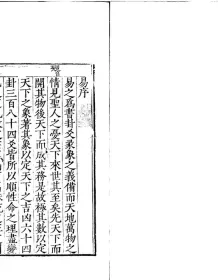 易序
易之爲書卦爻彖象之義備而天地萬物之
情見聖人之憂天下來世其至矣先天下而
開其物後天下而成其務是故極其數以定
天下之象著其象以定天下之吉凶六十四
卦三百八十四爻皆所以順性命之理盡變